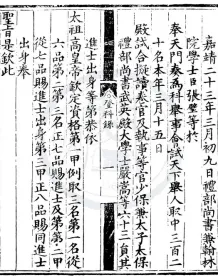 嘉靖二十三年三月初九日禮部尚書兼翰林
院學士臣張璧等於
奉天門奏爲科舉事會試天下舉人取中三百二
十名本年三月十五日
殿試合擬讀卷官及執事等官少保兼太子太保
禮部尚書武英殿大學士嚴嵩等六十三員其
進士出身等第恭依
登科録
一
太祖高皇帝欽定資格第一甲例取三名第一名從
六品第二第三名正七品賜進士及第第二甲
從七品賜進士出身第三甲正八品賜同進士
出身奉
聖旨是欽此